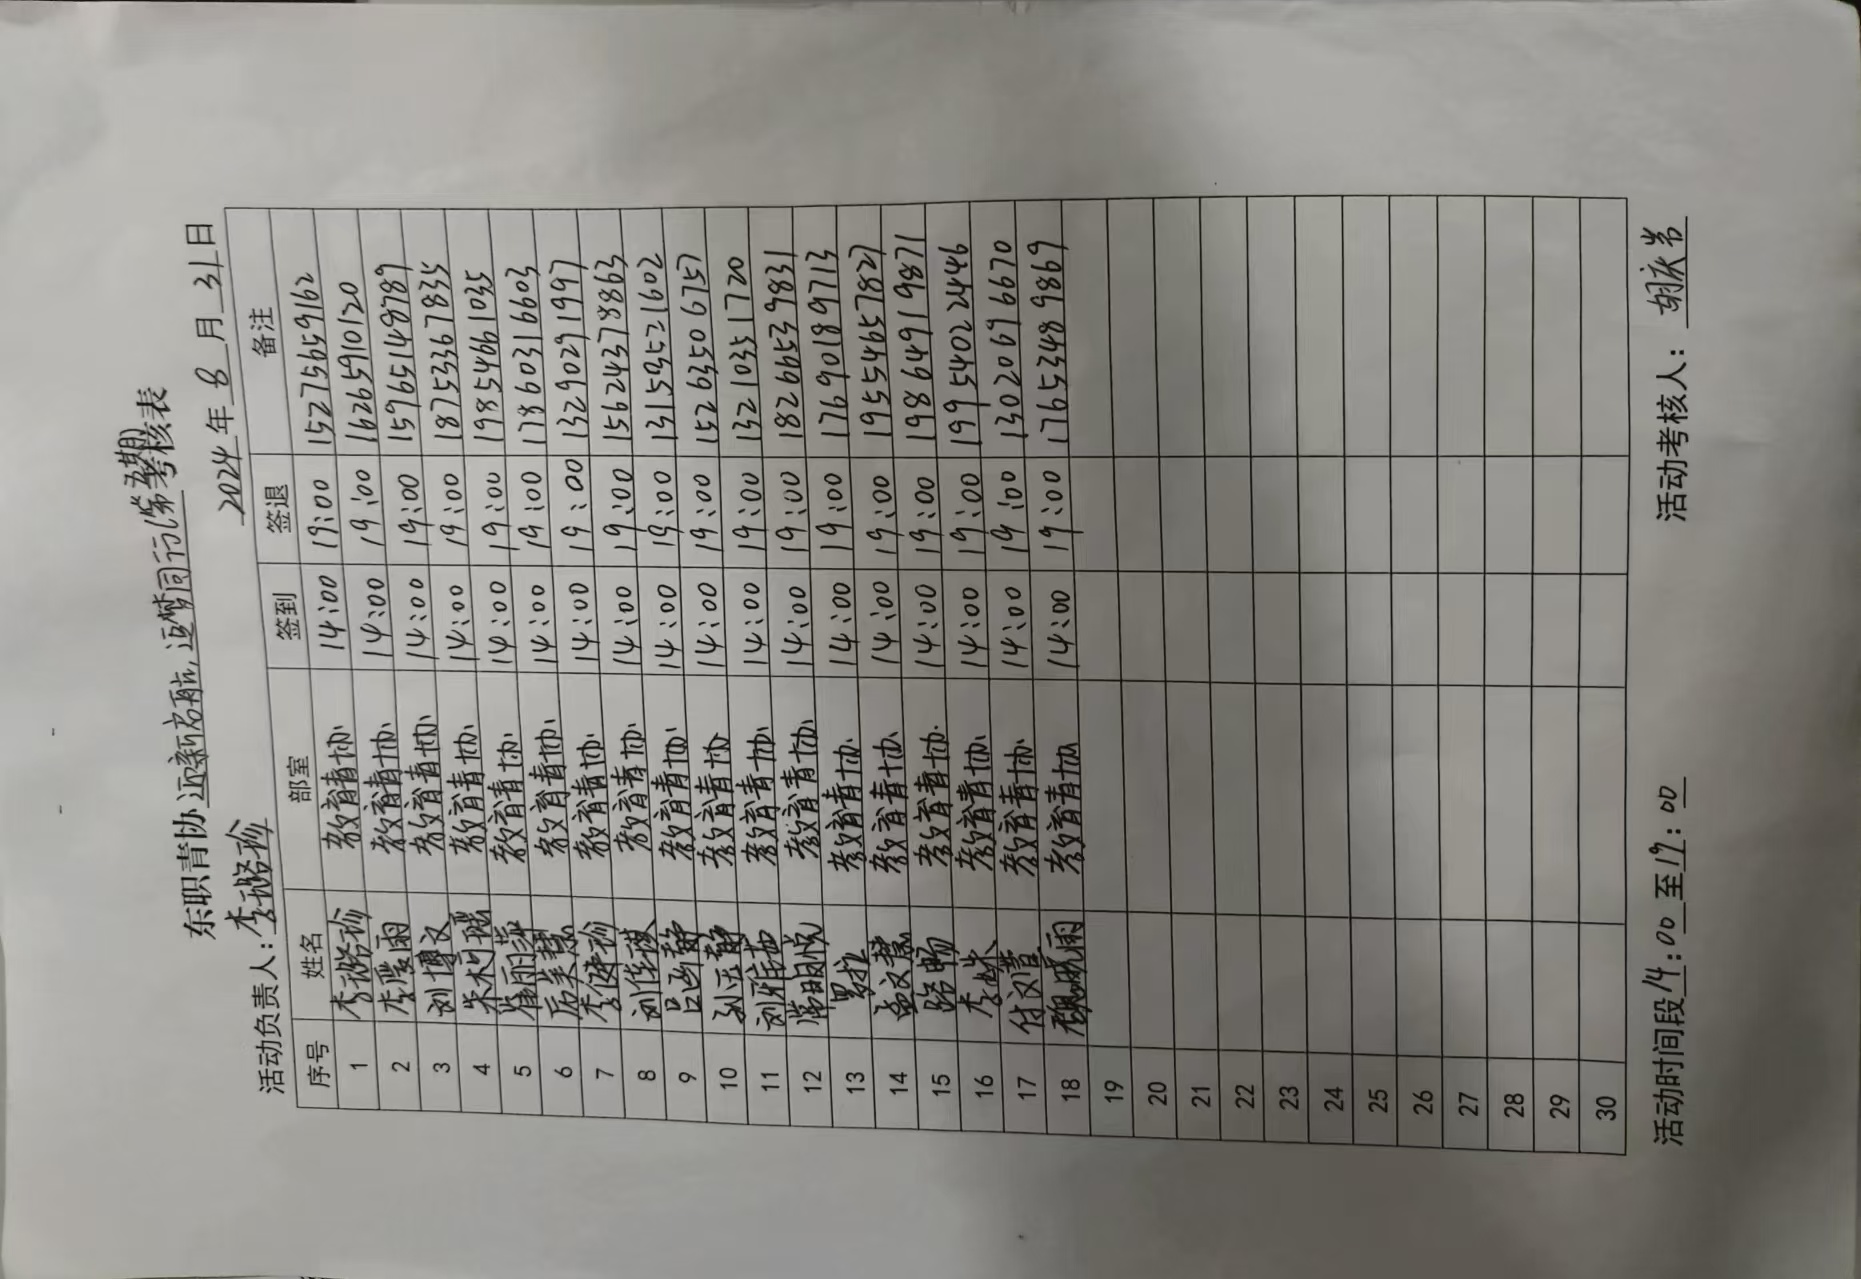 东职青协迎新启航,逐梦同行(第五期)考核表
2024年8月31日
活动负责人:李璐珍
序号 姓名 部室 签到 签退 备注
1 李璐珍 教育青协 14:00 19:00 15275659162
2 李雯雨 教育青协 14:00 19:00 16265910120
3 刘博文 教育青协 14:00 19:00 15965148789
4 朱柯瑶 教育青协 14:00 19:00 18753367835
5 崔丽萍 教育青协 14:00 19:00 19854661035
6 教育青协 14:00 19:00 17860316603
7 李婕珍 教育青协 14:00 19:00 13290291997
8 刘佳琪 教育青协 14:00 19:00 15624378863
9 教育青协 14:00 19:00 13159521602
10 教育青协 14:00 19:00 15263506757
11 刘雅茹 教育青协 14:00 19:00 13210351720
12 常明悦 教育青协 14:00 19:00 18266539831
13 罗拉 教育青协 14:00 19:00 17690189713
14 孟文慧 教育青协 14:00 19:00 19554657827
15 路畅 教育青协 14:00 19:00 19864919871
16 李姝 教育青协 14:00 19:00 19954022446
17 付文萱 教育青协 14:00 19:00 13020696670
18 魏晓雨 教育青协 14:00 19:00 17653489869
19
20
21
22
23
24
25
26
27
28
29
30
活动时间段14:00至19:00 活动考核人:胡庆